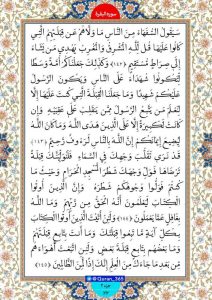 سورة البقرة
سَيَقُولُ السُّفَهَاءُ مِنَ النَّاسِ مَا وَلَّاهُمْ عَن قِبْلَتِهِمُ الَّتِي
كَانُوا عَلَيْهَا قُل لِّلَّهِ الْمَشْرِقُ وَالْمَغْرِبُ يَهْدِي مَن يَشَاءُ
إِلَىٰ صِرَاطٍ مُّسْتَقِيمٍ ﴿١٤٢﴾ وَكَذَٰلِكَ جَعَلْنَاكُمْ أُمَّةً وَسَطًا
لِّتَكُونُوا شُهَدَاءَ عَلَى النَّاسِ وَيَكُونَ الرَّسُولُ
عَلَيْكُمْ شَهِيدًا وَمَا جَعَلْنَا الْقِبْلَةَ الَّتِي كُنتَ عَلَيْهَا إِلَّا
لِنَعْلَمَ مَن يَتَّبِعُ الرَّسُولَ مِمَّن يَنقَلِبُ عَلَىٰ عَقِبَيْهِ وَإِن
كَانَتْ لَكَبِيرَةً إِلَّا عَلَى الَّذِينَ هَدَى اللَّهُ وَمَا كَانَ اللَّهُ
لِيُضِيعَ إِيمَانَكُمْ إِنَّ اللَّهَ بِالنَّاسِ لَرَءُوفٌ رَّحِيمٌ ﴿١٤٣﴾
قَدْ نَرَىٰ تَقَلُّبَ وَجْهِكَ فِي السَّمَاءِ فَلَنُوَلِّيَنَّكَ قِبْلَةً
تَرْضَاهَا فَوَلِّ وَجْهَكَ شَطْرَ الْمَسْجِدِ الْحَرَامِ وَحَيْثُ مَا
كُنتُمْ فَوَلُّوا وُجُوهَكُمْ شَطْرَهُ وَإِنَّ الَّذِينَ أُوتُوا
الْكِتَابَ لَيَعْلَمُونَ أَنَّهُ الْحَقُّ مِن رَّبِّهِمْ وَمَا اللَّهُ
بِغَافِلٍ عَمَّا يَعْمَلُونَ ﴿١٤٤﴾ وَلَئِنْ أَتَيْتَ الَّذِينَ أُوتُوا الْكِتَابَ
بِكُلِّ آيَةٍ مَّا تَبِعُوا قِبْلَتَكَ وَمَا أَنتَ بِتَابِعٍ قِبْلَتَهُمْ
وَمَا بَعْضُهُم بِتَابِعٍ قِبْلَةَ بَعْضٍ وَلَئِنِ اتَّبَعْتَ أَهْوَاءَهُم
مِّن بَعْدِ مَا جَاءَكَ مِنَ الْعِلْمِ إِنَّكَ إِذًا لَّمِنَ الظَّالِمِينَ ﴿١٤٥﴾
@Quran_365